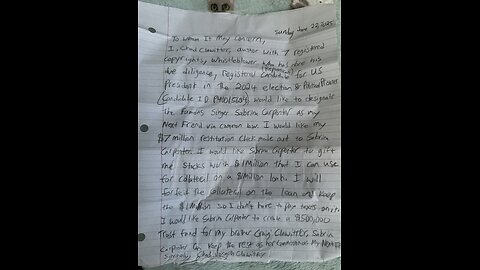 Sunday June 22, 2025
To Whom It May Concern,
I, Chad Clawitter, author with 7 registered
copyrights, whistleblower who has done his
due diligence, registered candidate for US
President in the 2024 election &
(candidate ID ) would like to designate
the famous singer Sabrina Carpenter as my
Next Friend via common law. I would like my
$7 million restitution check made out to Sabrina
Carpenter. I would like Sabrina Carpenter to gift
me stocks worth $1 Million that I can use
for collateral on a $1 Million loan. I will
forfeit the collateral on the loan and keep
the $1 Million so I don't have to pay taxes on it.
I would like Sabrina Carpenter to create a $500,000
Trust fund for my brother Craig Clawitter. Sabrina
Carpenter can keep the rest as her commission as My Next Friend.
Sincerely, Chad Clawitter